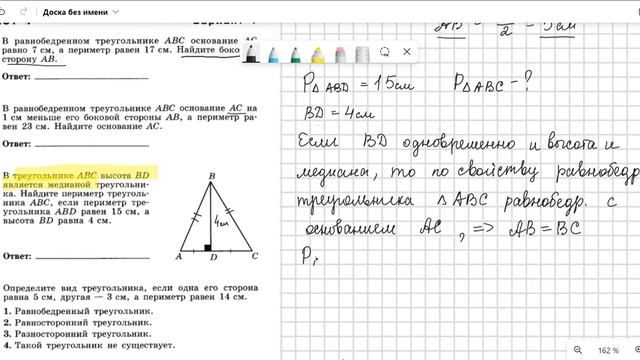 Доска без имени
В равнобедренном треугольнике ABC основание AC
равно 7 см, а периметр равен 17 см. Найдите боко
сторону AB.
Ответ:
В равнобедренном треугольнике ABC основание AC на
1 см меньше его боковой стороны AB, а периметр ра-
вен 23 см. Найдите основание AC.
Ответ:
В треугольнике ABC высота BD
является медианой треугольни-
ка. Найдите периметр треуголь-
ника ABC, если периметр тре-
угольника ABD равен 15 см, а
высота BD равна 4 см.
Ответ:
B
4см
A D C
Определите вид треугольника, если одна его сторона
равна 5 см, другая — 3 см, а периметр равен 14 см.
1. Равнобедренный треугольник.
2. Равносторонний треугольник.
3. Разносторонний треугольник.
4. Такой треугольник не существует.
2
P△ABD = 15см P△ABC - ?
BD = 4см
Если BD одновременно и высота и
медиана, то по свойству равнобедр
треугольника △ABC равнобедр. с
основанием AC, => AB = BC
P
162 %